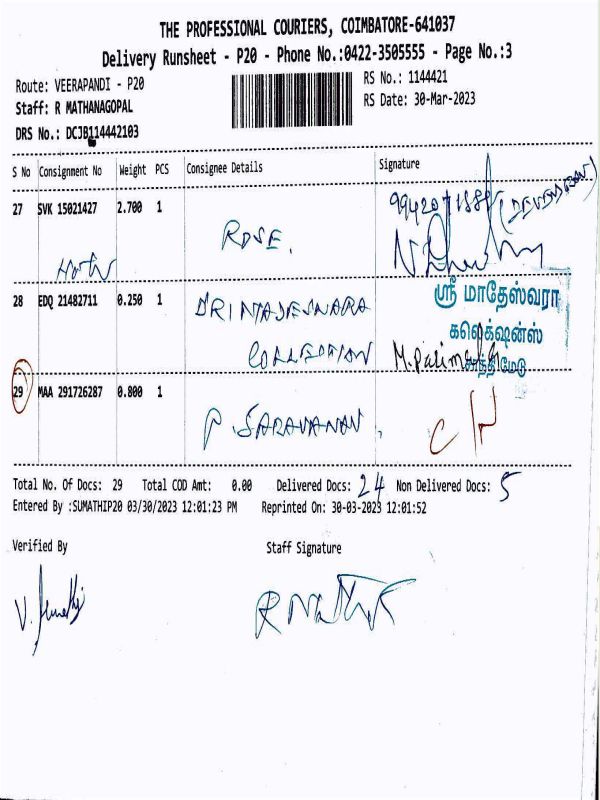 THE PROFESSIONAL COURIERS, COIMBATORE-641037
Delivery Runsheet - P20 - Phone No.:0422-3505555 - Page No.:3
Route: VEERAPANDI - P20
RS No.: 1144421
Staff: R MATHANAGOPAL
RS Date: 30-Mar-2023
DRS No.: DCJB114442103
S No Consignment No Weight PCS Consignee Details Signature
27 SVK 15021427 2.700 1
ROSE.
28 EDQ 21482711 0.250 1
ஸ்ரீ மாதேஸ்வரா
கலெக்ஷன்ஸ்
29 MAA 291726287 0.800 1
P. SARAVANAN.
Total No. Of Docs: 29 Total COD Amt: 0.00 Delivered Docs: 24 Non Delivered Docs: 5
Entered By :SUMATHIP20 03/30/2023 12:01:23 PM Reprinted On: 30-03-2023 12:01:52
Verified By Staff Signature